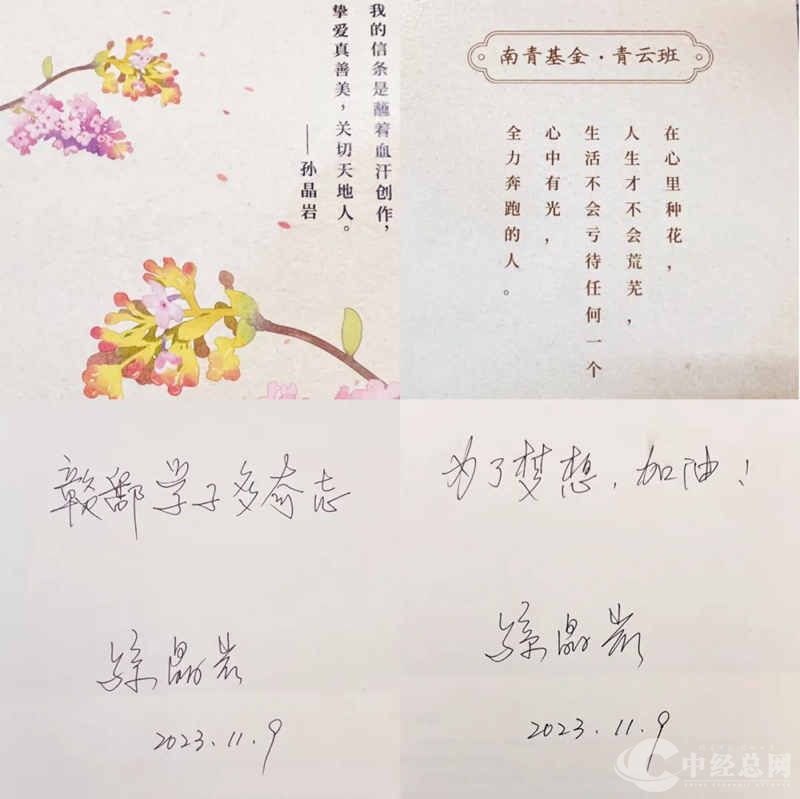 我的信条是蘸着血汗创作，
挚爱真善美，关切天地人。
——孙晶岩
南青基金·青云班
在心里种花，
人生才不会荒芜，
生活不会亏待任何一个
心中有光，
全力奔跑的人。
赣鄱学子多奇志
孫晶岩
2023.11.9
为了梦想，加油！
孫晶岩
2023.11.9
中经总网